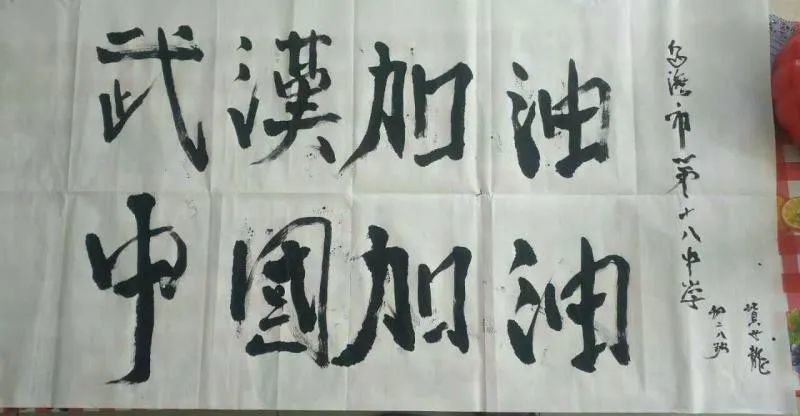 武漢加油
中國加油
乌海市第十八中学
初二八班
龍